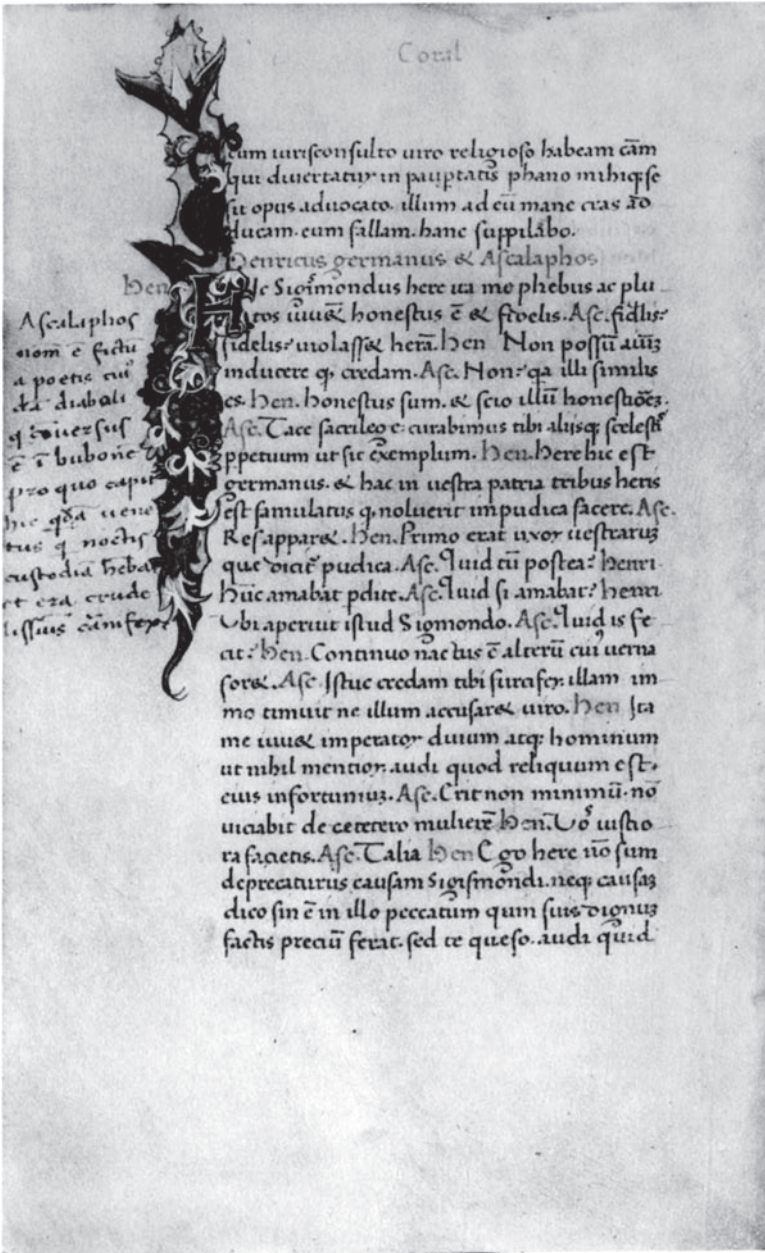 Coral
cum iurisconsulto uiro religioso habeam cām
qui diuertatur in paupertatis phano mihiqꝫ se
sit opus aduocato. illum ad eū mane cras
ducam. eum fallam. hanc suppilabo.
Henricus germanus & Ascalaphos
Hen
Hic Sigismondus here ita me phebus ac plu
tos iuu& honestus ē & fidelis. Asc. fidlis?
fidelis? uiolass& herā. Hen Non possū
inducere qꝫ credam. Asc. Non? qa illi similis
es. Hen. honestus sum. & scio illū
Asc. Tace sacrilege: curabimus tibi aliisqꝫ scelesti
ppetuum ut sit exemplum. Hen. Here hic est
germanus. & hac in uestra patria tribus heris
est famulatus qꝫ noluerit impudica facere. Asc.
Res appar&. Hen. Primo erat uxor uestraruꝫ
que dicit̄ pudica. Asc. Quid tū postea? Henri
hūc amabat pdite. Asc. Quid si amabat? henri
Vbi aperuit istud Sigmondo. Asc. Quid is fe
cit? Hen. Continuo nactus ē alterū cui uerna
for&. Asc Istuc credam tibi furcifer. illam im
mo timuit ne illum accusar& uiro. Hen Ita
me iuu& imperator diuum atqꝫ hominum
ut nihil mentior. audi quod reliquum est.
eius infortuniuꝫ. Asc. Erit non minimū. nō
uiciabit de cetetero mulierē Hen. Vō iustio
ra facietis. Asc. Talia Hen Ego here nō sum
deprecaturus causam Sigismondi. neqꝫ causaꝫ
dico sin ē in illo peccatum quin suis dignuꝫ
factis preciū ferat. sed te queso. audi quid
Ascalaphos
nom̄ ē fictū
a poetis
diaboli
q cōuersus
ē ī bubonē
pro quo capit
hic qdā uene
tus q noctis
custodiā hēbat
et erā crude
lissimus carnifex